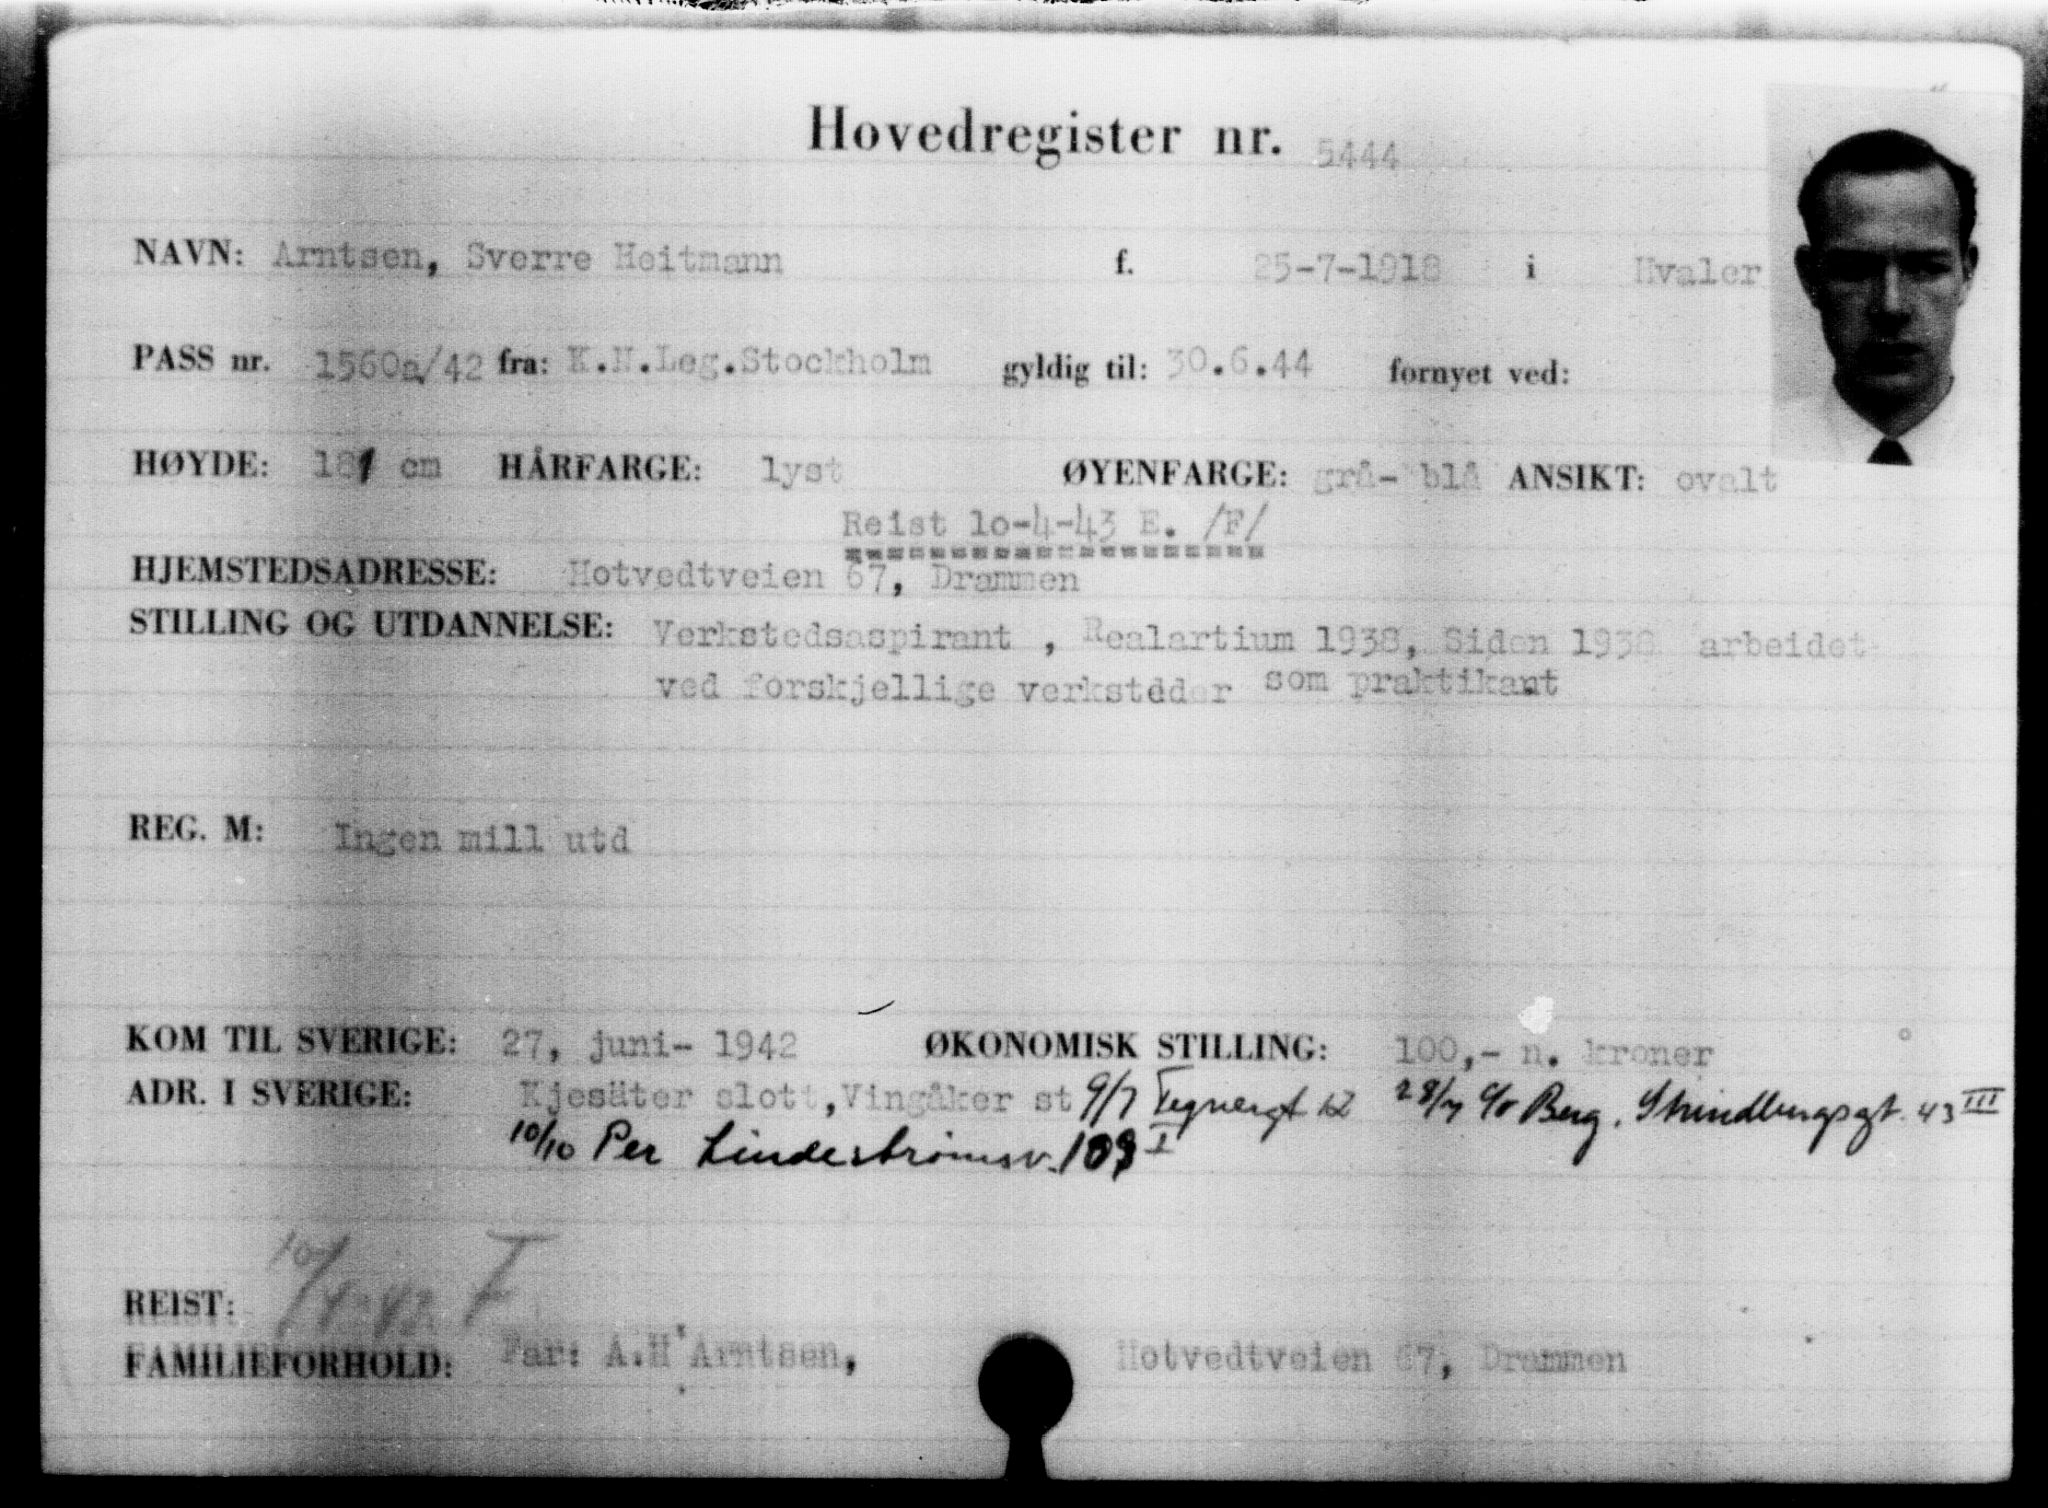 Hovedregister nr. 5444
NAVN: Arntsen, Sverre Heitmann f. 25-7-1918 i Hvaler
PASS nr. 1560a/42 fra: K.N.Leg.Stockholm gyldig til: 30.6.44 fornyet ved:
HØYDE: 181 cm HÅRFARGE: lyst ØYENFARGE: grå- blå ANSIKT: ovalt
Reist 10-4-43 E. /F/
HJEMSTEDSADRESSE: Hotvedtveien 67, Drammen
STILLING OG UTDANNELSE: Verkstedsaspirant , Realartium 1938, Siden 1938 arbeidet
ved forskjellige verksteder som praktikant
REG. M: Ingen mill utd
KOM TIL SVERIGE: 27, juni- 1942 ØKONOMISK STILLING: 100,- n. kroner
ADR. I SVERIGE: Kjesäter slott,Vingåker st 9/7 Tegnergt 12 28/7 c/o Berg. Strindbergsgt. 43 III
10/10 Per Lindeströmsv. 109 I
REIST: 10/4-43. F
FAMILIEFORHOLD: Far: A.H Arntsen, Hotvedtveien 67, Drammen